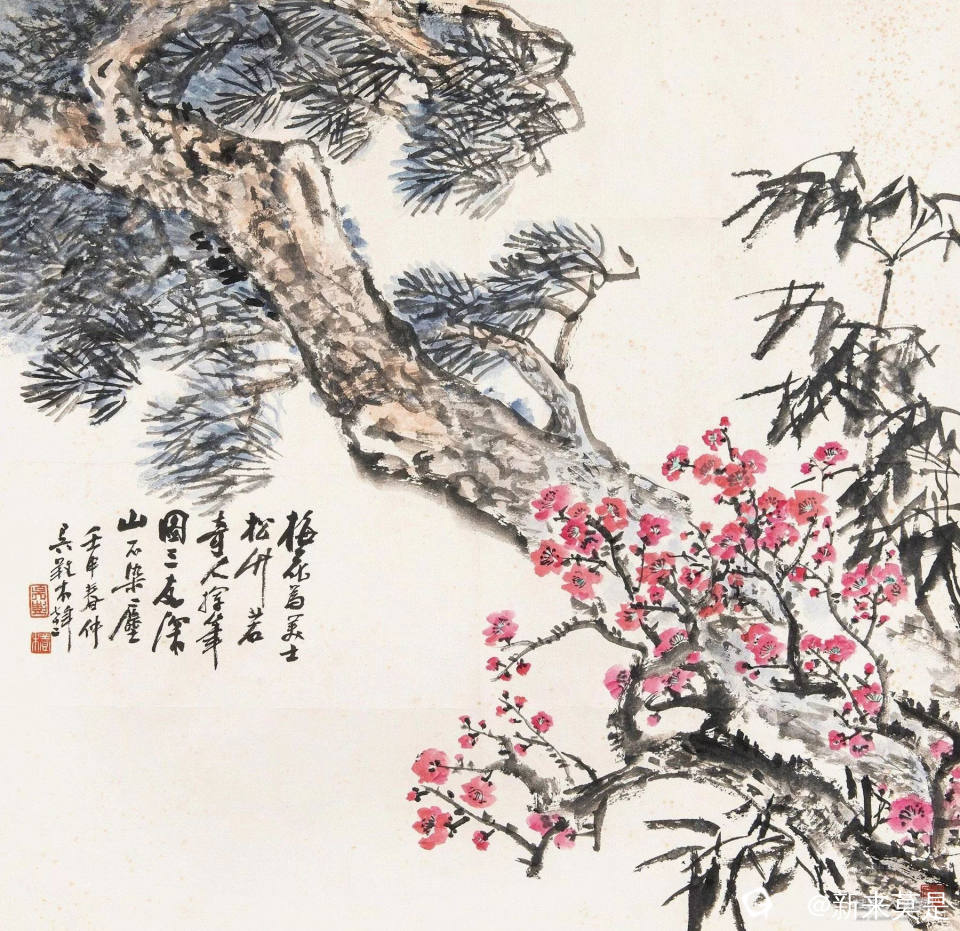 梅花為美士
松竹若
奇人揮筆
圖三友深
山不染塵
壬申春仲
吳䍩木
@新来莫是